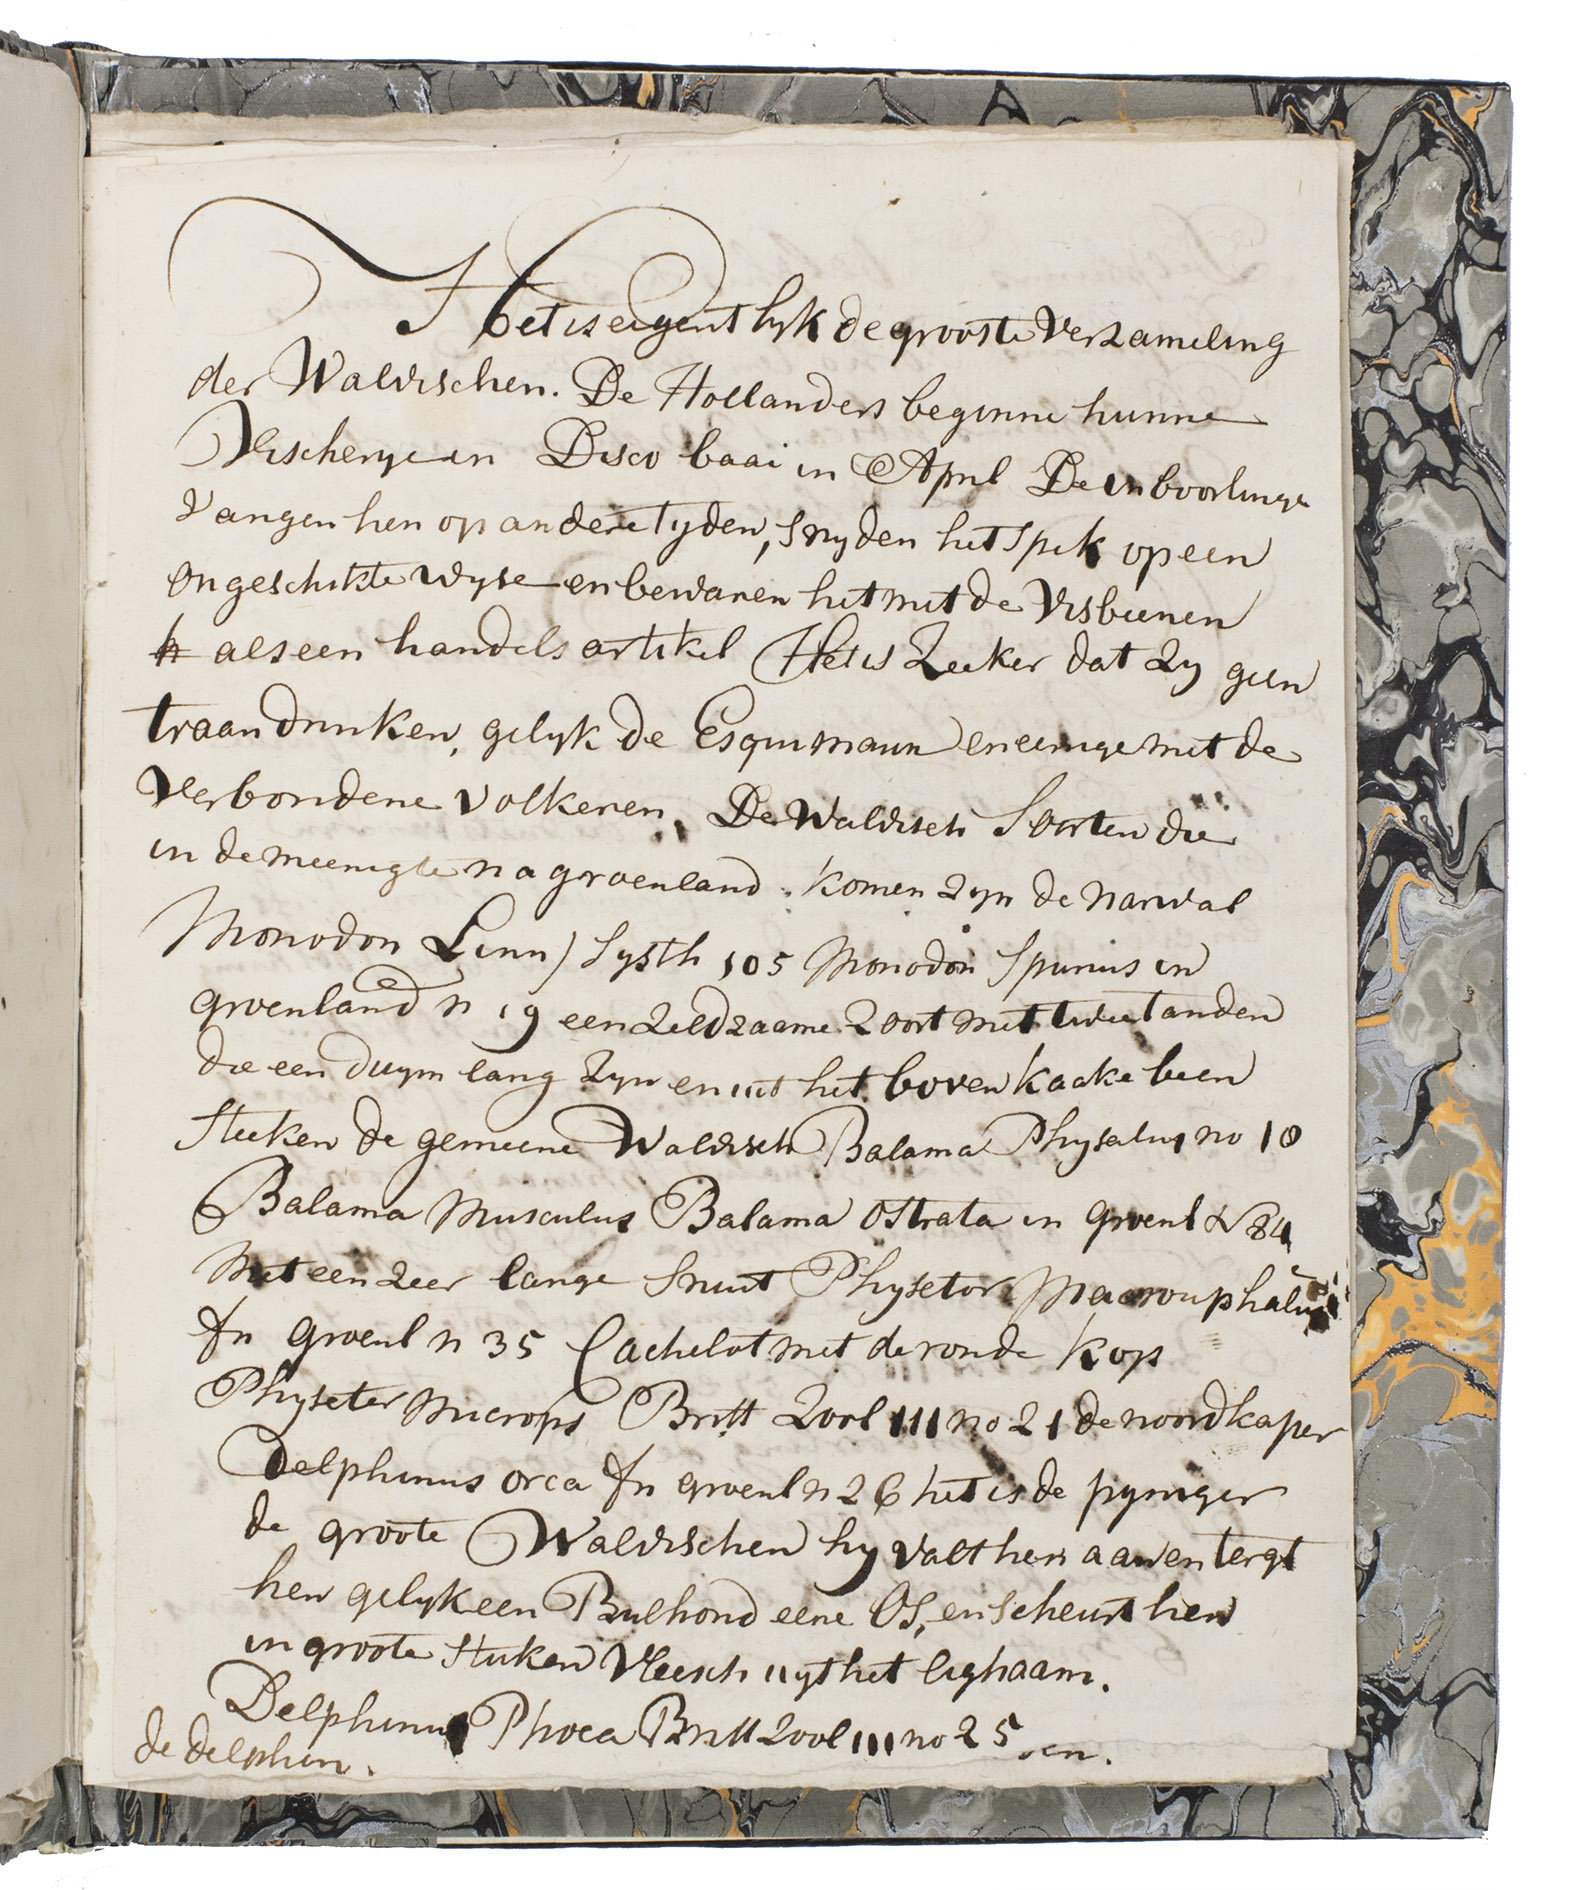 Het is eigentlyk de grooste Verzameling
der Walvischen. De Hollanders beginne hunne
Visscherye in Disco baai in April De inboorlinge
Vangen hen op andere tyden, snyden het spek op een
ongeschikte wyse en bewaren het met de Visbeenen
als een handels artikel Het is Zeeker dat zy geen
traan drinken, gelyk de Esquimaux en eenige met de
Verbondene Volkeren. De Walvisch Soorten die
in de meenigte na groenland komen zyn de narwal
Monodon Linn) Systh 105 Monodon Spurius in
groenland n 19 een zeldzaame zoort met twee tanden
die een duym lang zyn en uit het boven kaake been
steeken de gemeene Walvisch Balama Physalus no 18
Balama Musculus Balama Ostrata in groenl N 84
Met een zeer lange snuit Physeter Macrouphalus
fn groenl n 35 Cachelot met de ronde kop
Physeter microps Britt Zool III no 21 de noordkaper
Delphinus orca fn groenl n 26 het is de pyniger
de groote Walvischen hy valt hen aan en tergt
hen gelyk een Bulhond eene Os, en scheurt hen
in groote stuken Vleesch uyt het lighaam.
Delphinus Phoca Britt Zool III no 25 en.
de delphin.